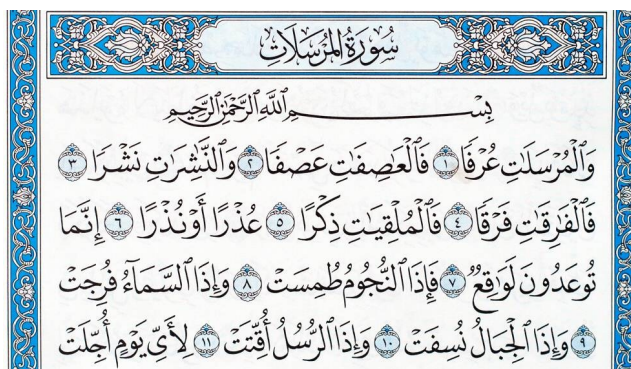 سُورَةُ المُرْسَلَاتِ
بِسْمِ ٱللَّهِ ٱلرَّحْمَٰنِ ٱلرَّحِيمِ
وَٱلْمُرْسَلَٰتِ عُرْفًا ١ فَٱلْعَٰصِفَٰتِ عَصْفًا ٢ وَٱلنَّٰشِرَٰتِ نَشْرًا ٣
فَٱلْفَٰرِقَٰتِ فَرْقًا ٤ فَٱلْمُلْقِيَٰتِ ذِكْرًا ٥ عُذْرًا أَوْ نُذْرًا ٦ إِنَّمَا
تُوعَدُونَ لَوَٰقِعٌ ٧ فَإِذَا ٱلنُّجُومُ طُمِسَتْ ٨ وَإِذَا ٱلسَّمَآءُ فُرِجَتْ
٩ وَإِذَا ٱلْجِبَالُ نُسِفَتْ ١٠ وَإِذَا ٱلرُّسُلُ أُقِّتَتْ ١١ لِأَىِّ يَوْمٍ أُجِّلَتْ